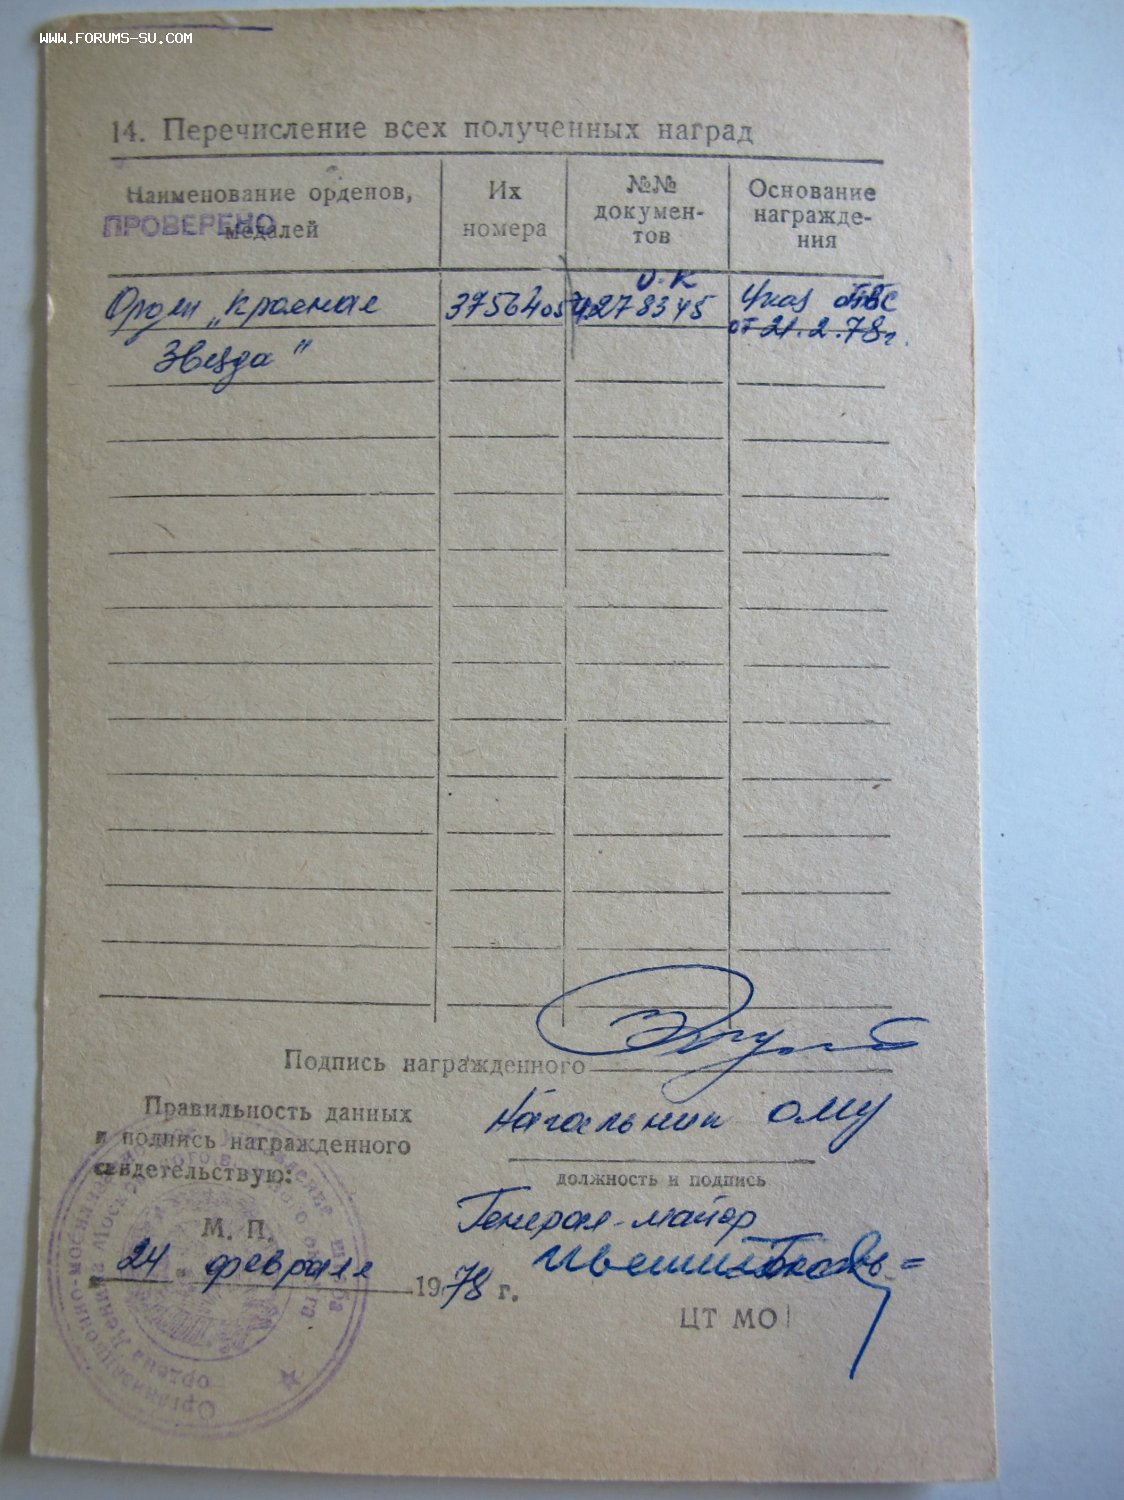 WWW.FORUMS-SU.COM
14. Перечисление всех полученных наград
Наименование орденов, медалей
ПРОВЕРЕНО
Их номера
№№ докумен-
тов
Основание
награжде-
ния
Орден „Красная
Звезда"
3756405
О-К
278345
Указ ПВС
от 21.2.78г.
Подпись награжденного
Правильность данных
и подпись награжденного
свидетельствую:
Начальник ОМУ
должность и подпись
Генерал-майор
М. П.
„24 февраля 1978 г.
ЦТ МО
Организационно-мобилизационное управление штаба
ордена Ленина Московского военного округа